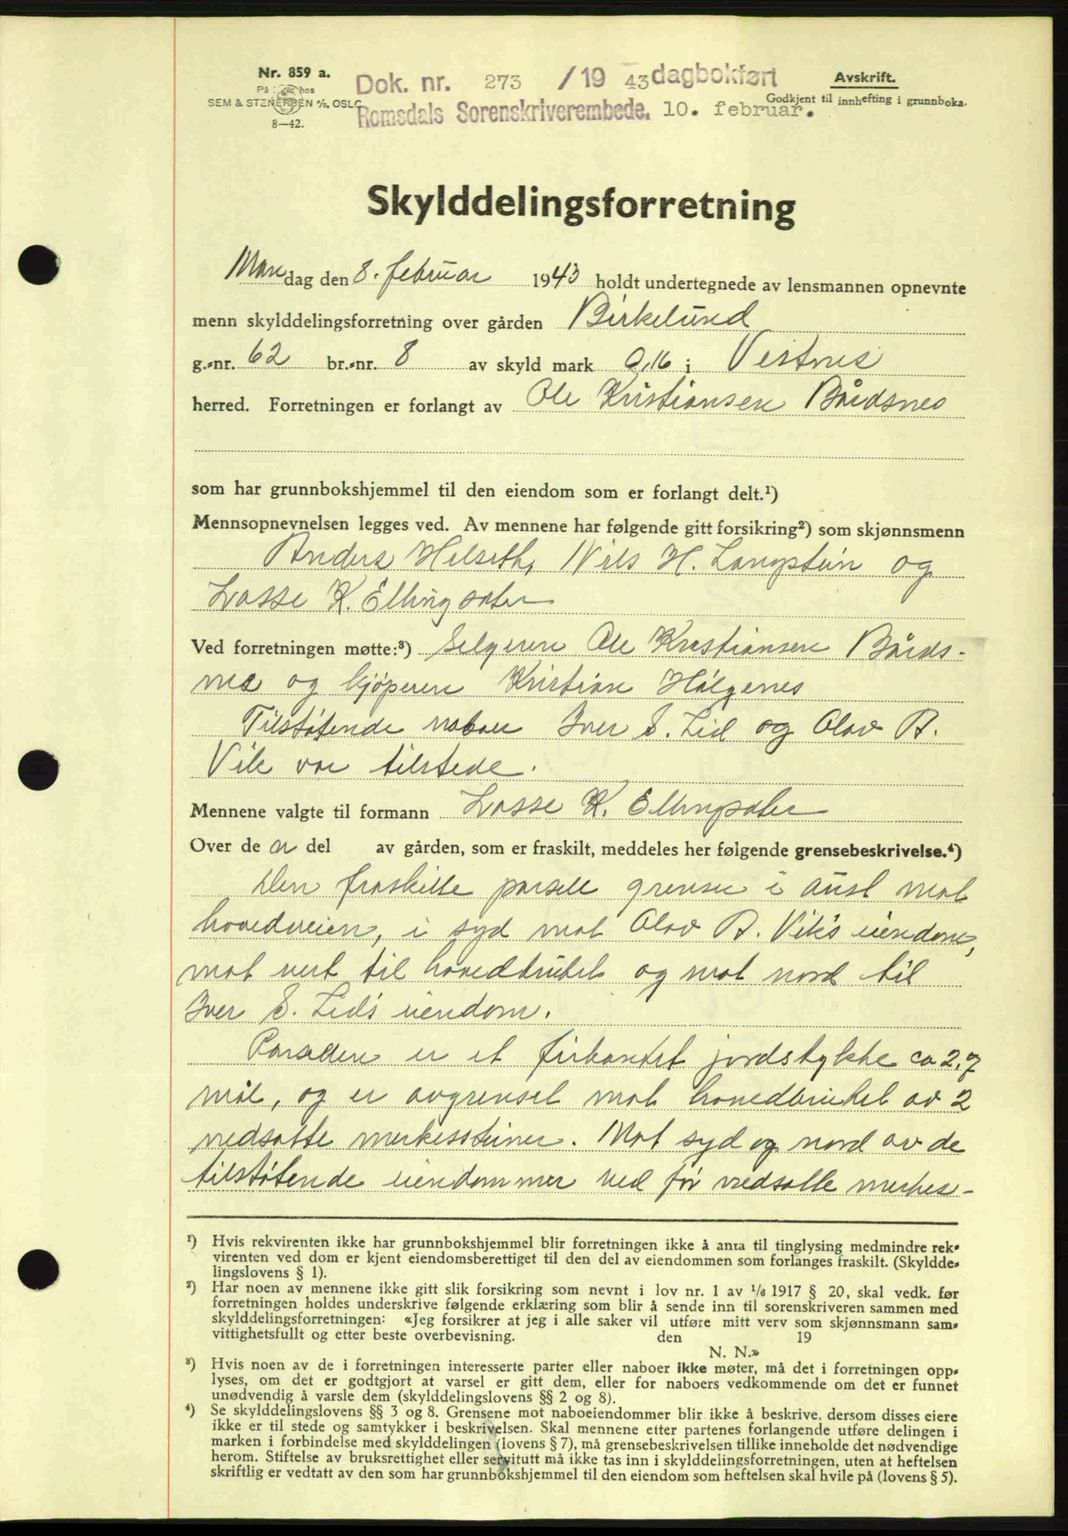 Nr. 859 a.
På lager hos
SEM & STENERSEN A/S, OSLO
8—42.
Dok. nr. 273 /19 43 dagbokført
Romsdals Sorenskriverembede. 10. februar.
Avskrift.
Godkjent til innhefting i grunnboka.
Skylddelingsforretning
Mandag den 8. februar 1943 holdt undertegnede av lensmannen opnevnte
menn skylddelingsforretning over gården Birkelund
g.-nr. 62 br.-nr. 8 av skyld mark 0,16 i Vestnes
herred. Forretningen er forlangt av Ole Kristiansen Bårdsnes
som har grunnbokshjemmel til den eiendom som er forlangt delt.¹)
Mennsopnevnelsen legges ved. Av mennene har følgende gitt forsikring²) som skjønnsmenn
Anders Helseth, Nils H. Langstein og
Lasse K. Ellingsæter
Ved forretningen møtte:³) Selgeren Ole Kristiansen Bårds-
nes og kjøperen Kristian Helgenes
Tilstøtende naboer Iver E. Lid og Olav A.
Vik var tilstede.
Mennene valgte til formann Lasse K. Ellingsæter
Over de n del av gården, som er fraskilt, meddeles her følgende grensebeskrivelse.⁴)
Den fraskilte parsell grenser i aust mot
hovedveien, i syd mot Olav A. Vik's eiendom,
mot vest til hovedbruket og mot nord til
Iver E. Lid's eiendom.
Parsellen er et firkantet jordstykke ca 2,7
mål, og er avgrenset mot hovedbruket av 2
nedsatte merkessteiner. Mot syd og nord av de
tilstøtende eiendommer ved før nedsatte merkes-
¹) Hvis rekvirenten ikke har grunnbokshjemmel blir forretningen ikke å anta til tinglysing medmindre rek-
virenten ved dom er kjent eiendomsberettiget til den del av eiendommen som forlanges fraskilt. (Skyldde-
lingslovens § 1).
²) Har noen av mennene ikke gitt slik forsikring som nevnt i lov nr. 1 av 1/6 1917 § 20, skal vedk. før
forretningen holdes underskrive følgende erklæring som blir å sende inn til sorenskriveren sammen med
skylddelingsforretningen: «Jeg forsikrer at jeg i alle saker vil utføre mitt verv som skjønnsmann sam-
vittighetsfullt og etter beste overbevisning. den 19
N. N.»
³) Hvis noen av de i forretningen interesserte parter eller naboer ikke møter, må det i forretningen opp-
lyses, om det er godtgjort at varsel er gitt dem, eller for naboers vedkommende om det er funnet
unødvendig å varsle dem (skylddelingslovens §§ 2 og 8).
⁴) Se skylddelingslovens §§ 3 og 8. Grensene mot naboeiendommer blir ikke å beskrive, dersom disses eiere
ikke er til stede og samtykker i beskrivelsen. Skal mennene etter partenes forlangende utføre delingen i
marken i forbindelse med skylddelingen (lovens § 7), må grensebeskrivelsen tillike inneholde det nødvendige
herom. Stiftelse av bruksrettighet eller servitutt må ikke tas inn i skylddelingsforretningen, uten at heftelsen
skriftlig er vedtatt av den som har grunnbokshjemmel til den eiendom som heftelsen skal hvile på (lovens § 5).